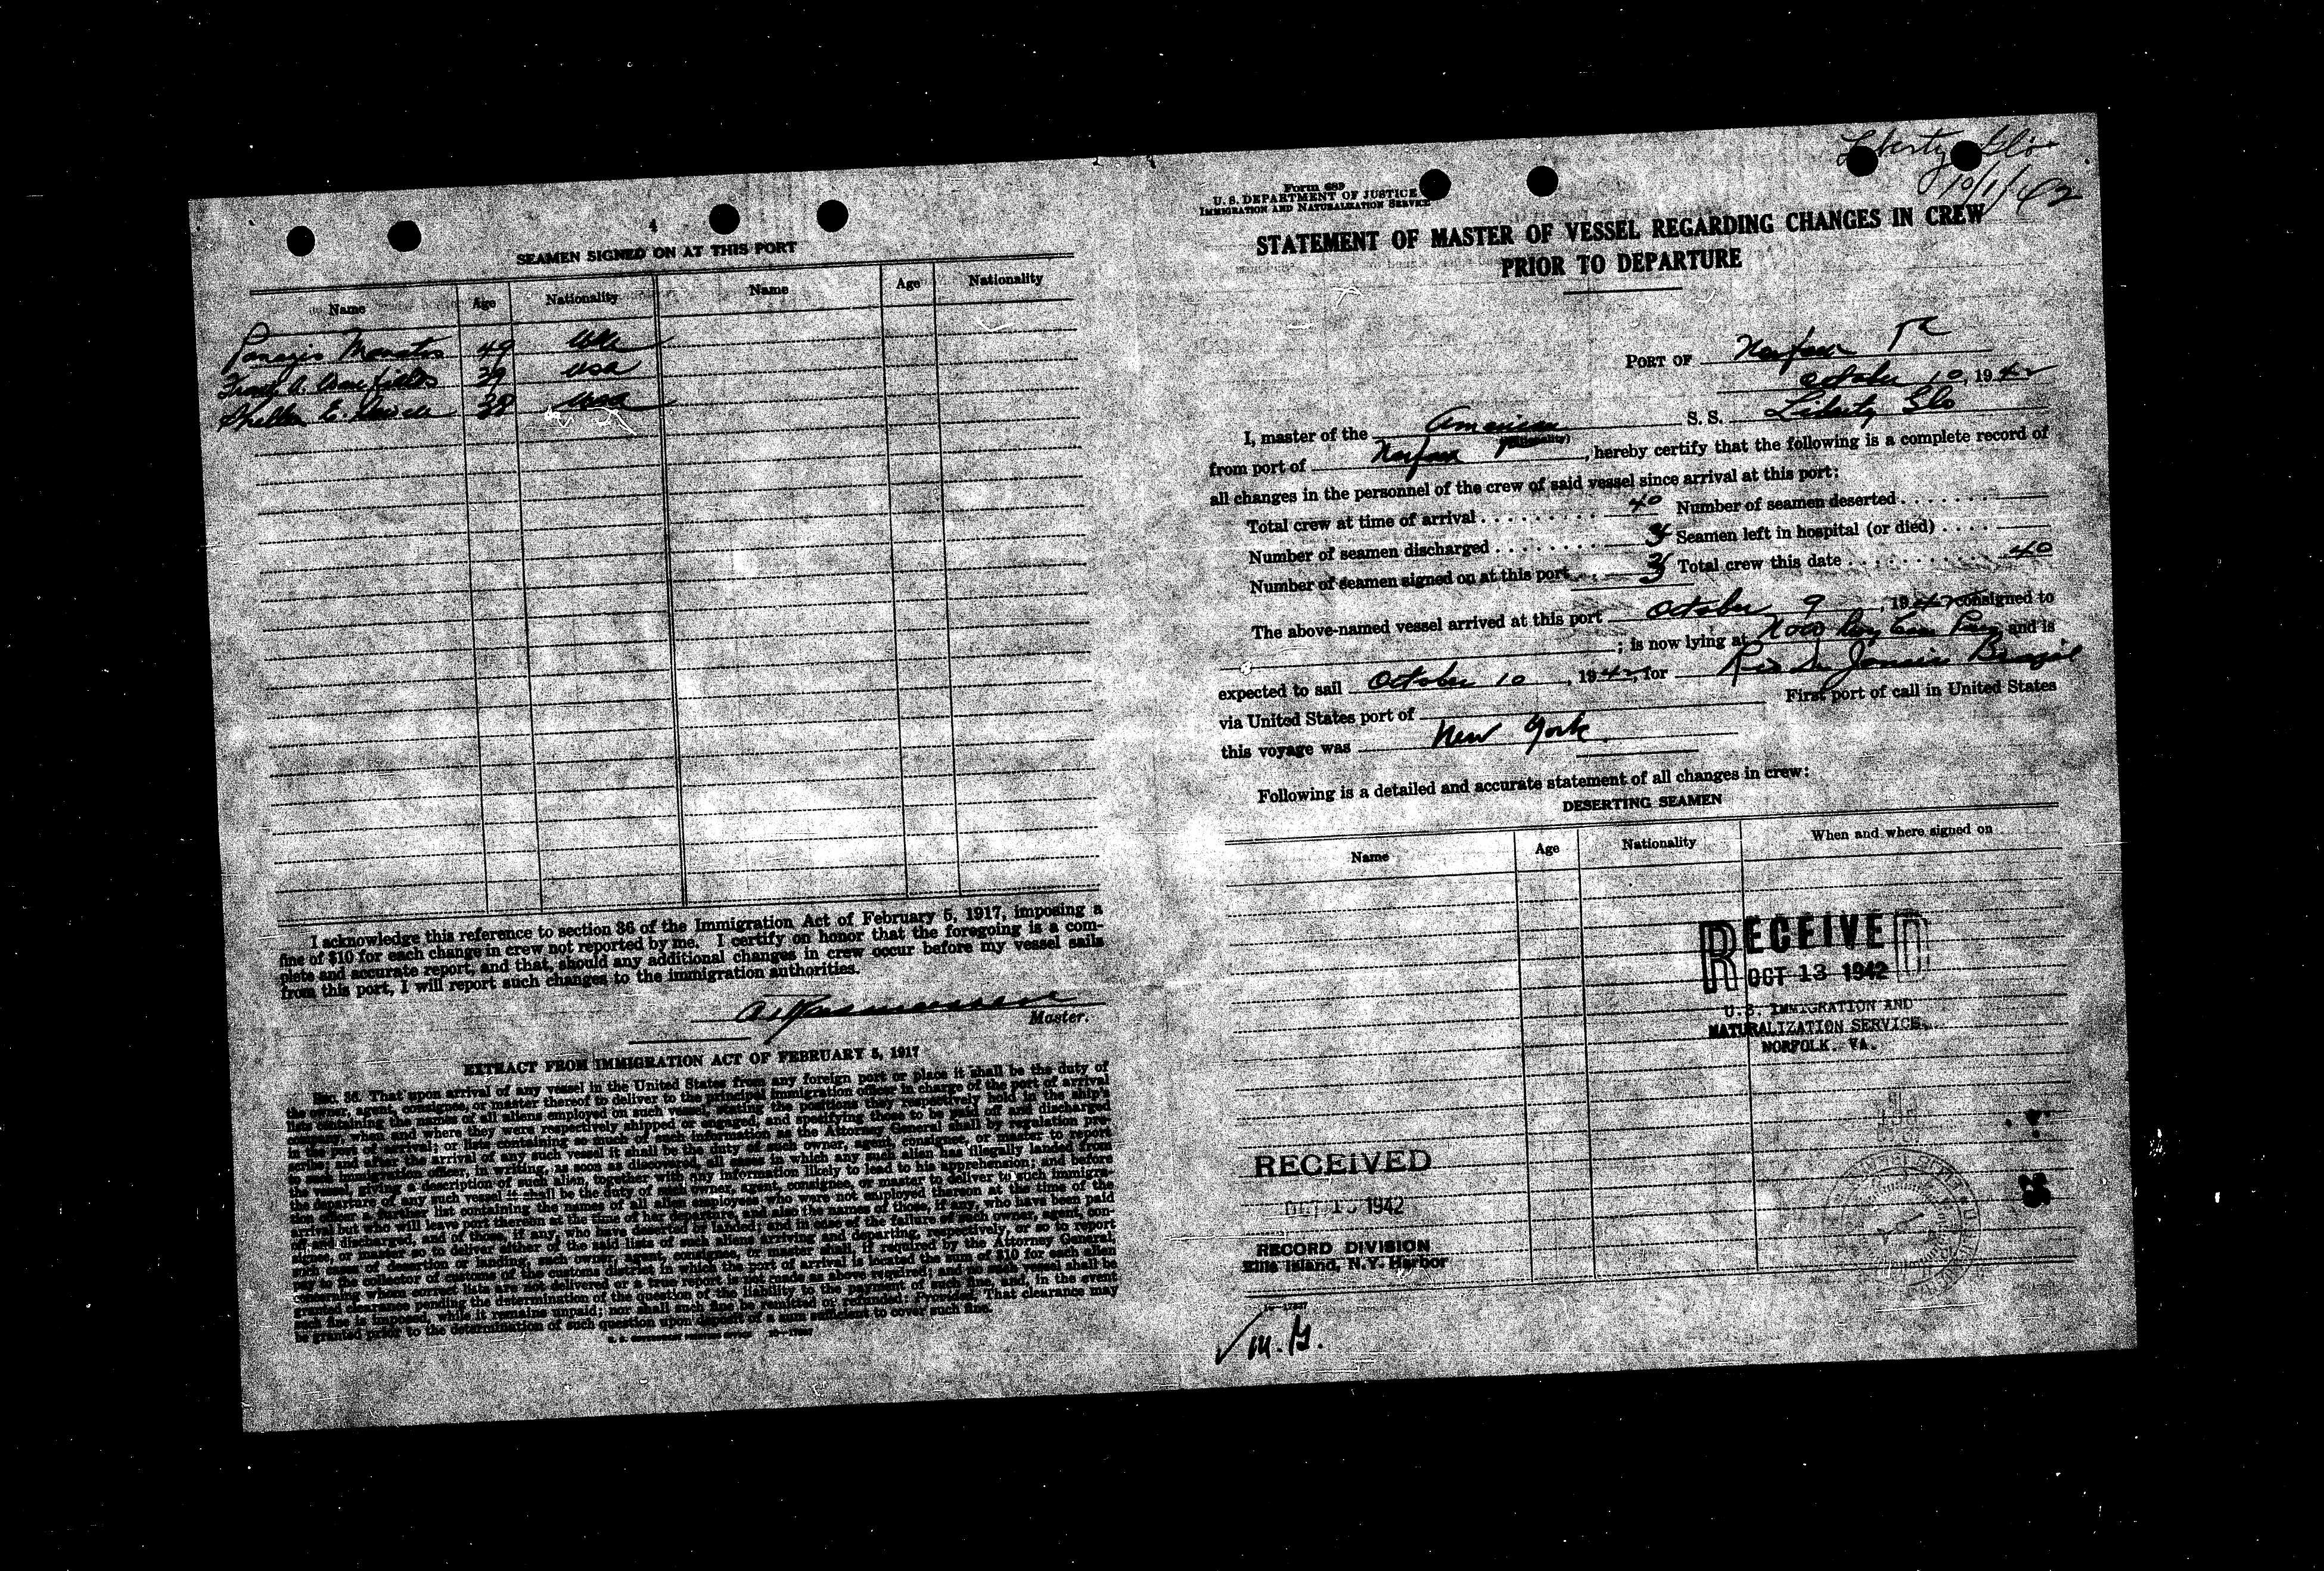 4
SEAMEN SIGNED ON AT THIS PORT
Name Age Nationality Name Age Nationality
49
39 USA
38 USA
I acknowledge this reference to section 36 of the Immigration Act of February 5, 1917, imposing a
fine of $10 for each change in crew not reported by me. I certify on honor that the foregoing is a com-
plete and accurate report, and that, should any additional changes in crew occur before my vessel sails
from this port, I will report such changes to the immigration authorities.
Master.
EXTRACT FROM IMMIGRATION ACT OF FEBRUARY 5, 1917
SEC. 36. That upon arrival of any vessel in the United States from any foreign port or place it shall be the duty of
the owner, agent, consignee, or master thereof to deliver to the principal immigration officer in charge of the port of arrival
lists containing the names of all aliens employed on such vessel, stating the positions they respectively hold in the ship's
company, when and where they were respectively shipped or engaged, and specifying those to be paid off and discharged
in the port of arrival; or lists containing so much of such information as the Attorney General shall by regulation pre-
scribe; and after the arrival of any such vessel it shall be the duty of such owner, agent, consignee, or master to report
to such immigration officer, in writing, as soon as discovered, all cases in which any such alien has illegally landed from
the vessel, giving a description of such alien, together with any information likely to lead to his apprehension; and before
the departure of any such vessel it shall be the duty of such owner, agent, consignee, or master to deliver to such immigra-
tion officer a further list containing the names of all alien employees who were not employed thereon at the time of the
arrival but who will leave port thereon at the time of her departure, and also the names of those, if any, who have been paid
off and discharged, and of those, if any, who have deserted or landed; and in case of the failure of such owner, agent, con-
signee, or master so to deliver either of the said lists of such aliens arriving and departing, respectively, or so to report
such cases of desertion or landing, such owner, agent, consignee, or master shall, if required by the Attorney General,
pay to the collector of customs of the customs district in which the port of arrival is located the sum of $10 for each alien
concerning whom correct lists are not delivered or a true report is not made as above required; and no such vessel shall be
granted clearance pending the determination of the question of the liability to the payment of such fine, and, in the event
such fine is imposed, while it remains unpaid; nor shall such fine be remitted or refunded: Provided, That clearance may
be granted prior to the determination of such question upon deposit of a sum sufficient to cover such fine.
U. S. GOVERNMENT PRINTING OFFICE
Liberty Glo
10/1/42
Form 689
U. S. DEPARTMENT OF JUSTICE
IMMIGRATION AND NATURALIZATION SERVICE
STATEMENT OF MASTER OF VESSEL REGARDING CHANGES IN CREW
PRIOR TO DEPARTURE
PORT OF Norfolk Va
October 10, 1942
I, master of the American S. S. Liberty Glo
(Nationality)
from port of Norfolk, hereby certify that the following is a complete record of
all changes in the personnel of the crew of said vessel since arrival at this port:
Total crew at time of arrival 40 Number of seamen deserted
Number of seamen discharged 3 Seamen left in hospital (or died)
Number of seamen signed on at this port 3 Total crew this date 40
The above-named vessel arrived at this port October 9, 1942 consigned to
; is now lying at and is
expected to sail October 10, 1942, for Rio de Janeiro Brazil
via United States port of First port of call in United States
this voyage was New York.
Following is a detailed and accurate statement of all changes in crew:
DESERTING SEAMEN
Name Age Nationality When and where signed on
RECEIVED
OCT 13 1942
U.S. IMMIGRATION AND
NATURALIZATION SERVICE
NORFOLK. VA.
RECEIVED
1942
RECORD DIVISION
Ellis Island, N.Y. Harbor
M.G.